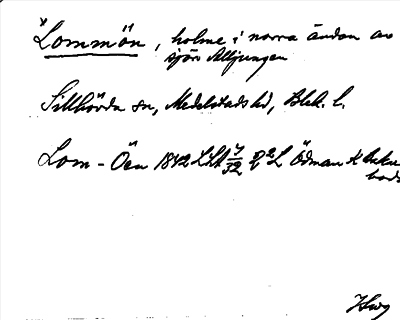 "Lommön, holme i norra ändan av
sjön Alljungen
Sillhövda sn, Medelstads hd, Blek. l.
Lom-Öen 1842 LSA 7/32 Ödman